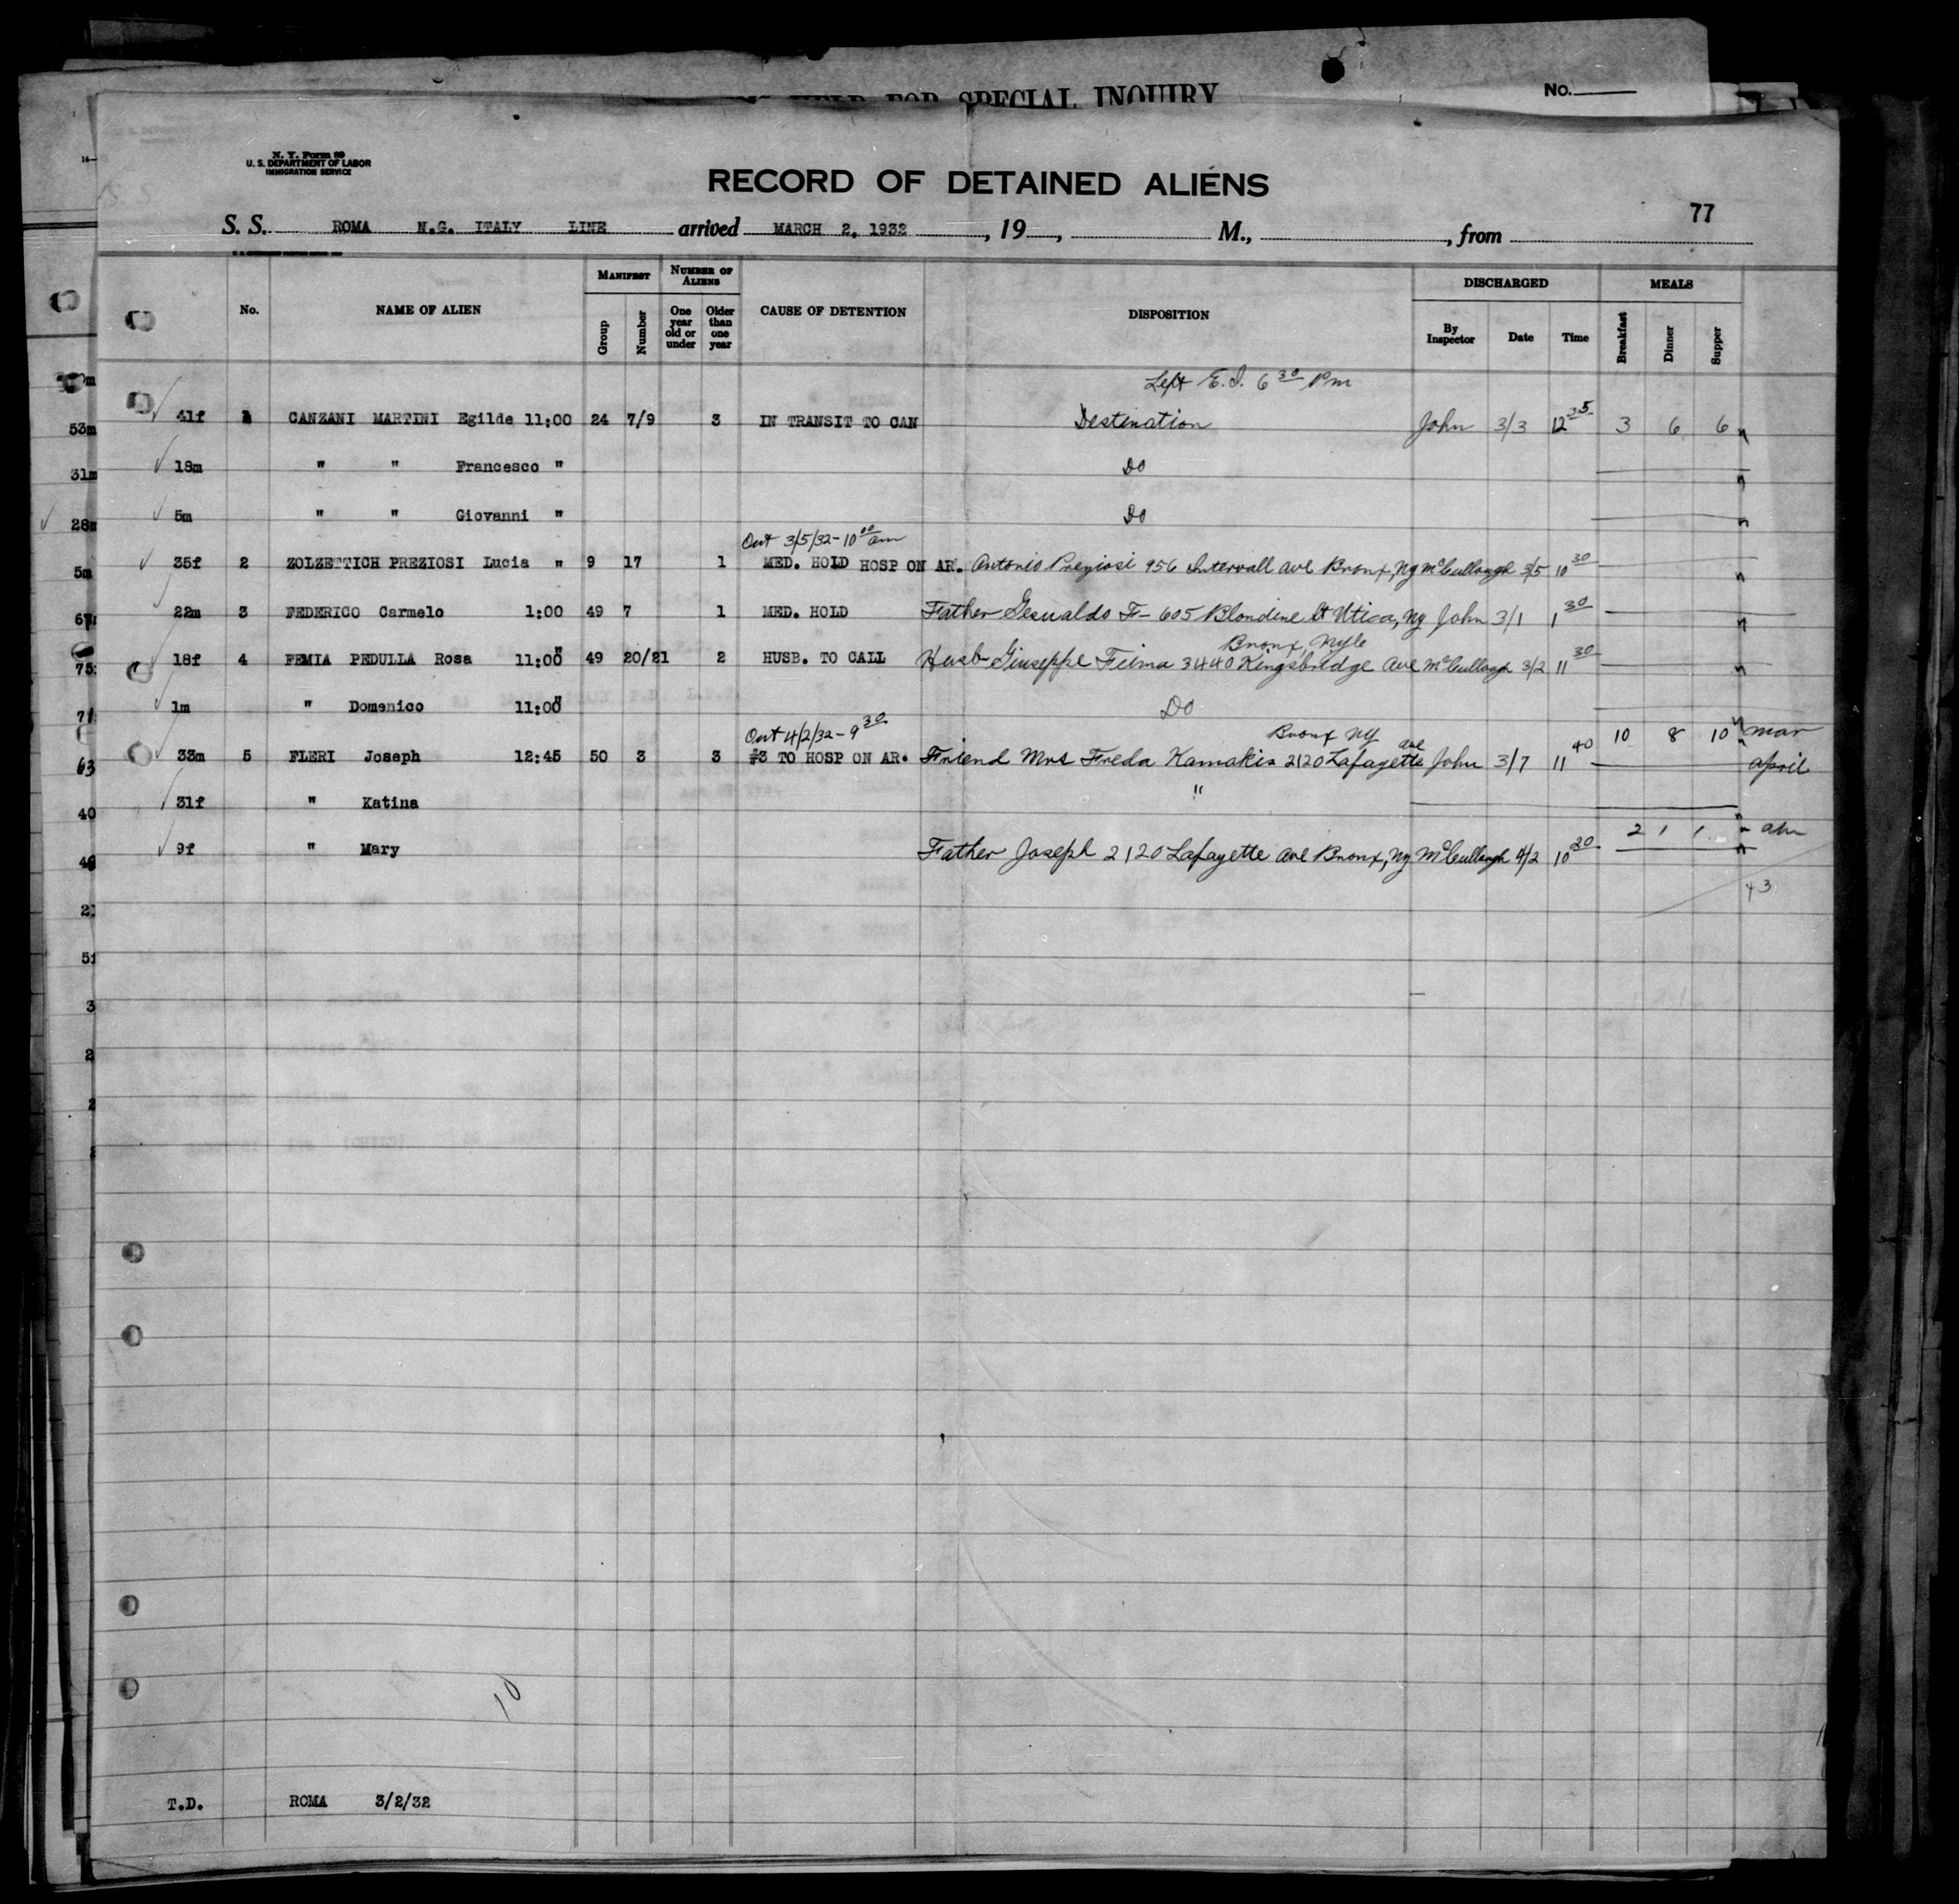 HELD FOR SPECIAL INQUIRY
No.
N. Y. Form 89
U. S. DEPARTMENT OF LABOR
IMMIGRATION SERVICE
RECORD OF DETAINED ALIENS
77
S. S. ROMA N.G. ITALY LINE arrived MARCH 2, 1932, 19, M., from
No. NAME OF ALIEN MANIFEST NUMBER OF ALIENS CAUSE OF DETENTION DISPOSITION DISCHARGED MEALS
Group Number One year old or under Older than one year By Inspector Date Time Breakfast Dinner Supper
Left E.I. 6 30 Pm
41f 1 CANZANI MARTINI Egilde 11:00 24 7/9 3 IN TRANSIT TO CAN Destination John 3/3 12 35 3 6 6
18m " " Francesco " Do
5m " " Giovanni " Do
Out 3/5/32 - 10 00 am
35f 2 ZOLZETTICH PREZIOSI Lucia " 9 17 1 MED. HOLD HOSP ON AR. Antonio Preziosi 956 Intervall ave Bronx, Ny McCullough 3/5 10 30
22m 3 FEDERICO Carmelo 1:00 49 7 1 MED. HOLD Father Gesualdo F- 605 Blondine St Utica, Ny John 3/1 1 30
Bronx, Nyc
18f 4 FEMIA PEDULLA Rosa 11:00 49 20/21 2 HUSB. TO CALL Husb Giuseppe Fiima 3440 Kingsbridge ave McCullough 3/2 11 30
1m " Domenico 11:00 Do
Out 4/2/32 - 9 30 Bronx Ny 10 8 10 mar
33m 5 FLERI Joseph 12:45 50 3 3 #3 TO HOSP ON AR. Friend Mrs Freda Kamakis 2120 Lafayette ave John 3/7 11 40 april
31f " Katina "
2 1 1
9f " Mary Father Joseph 2120 Lafayette ave Bronx, Ny McCullough 4/2 10 20
43
10
T.D. ROMA 3/2/32
53m
31m
28m
5m
67
75
71
63
40
2
51
3
2
2